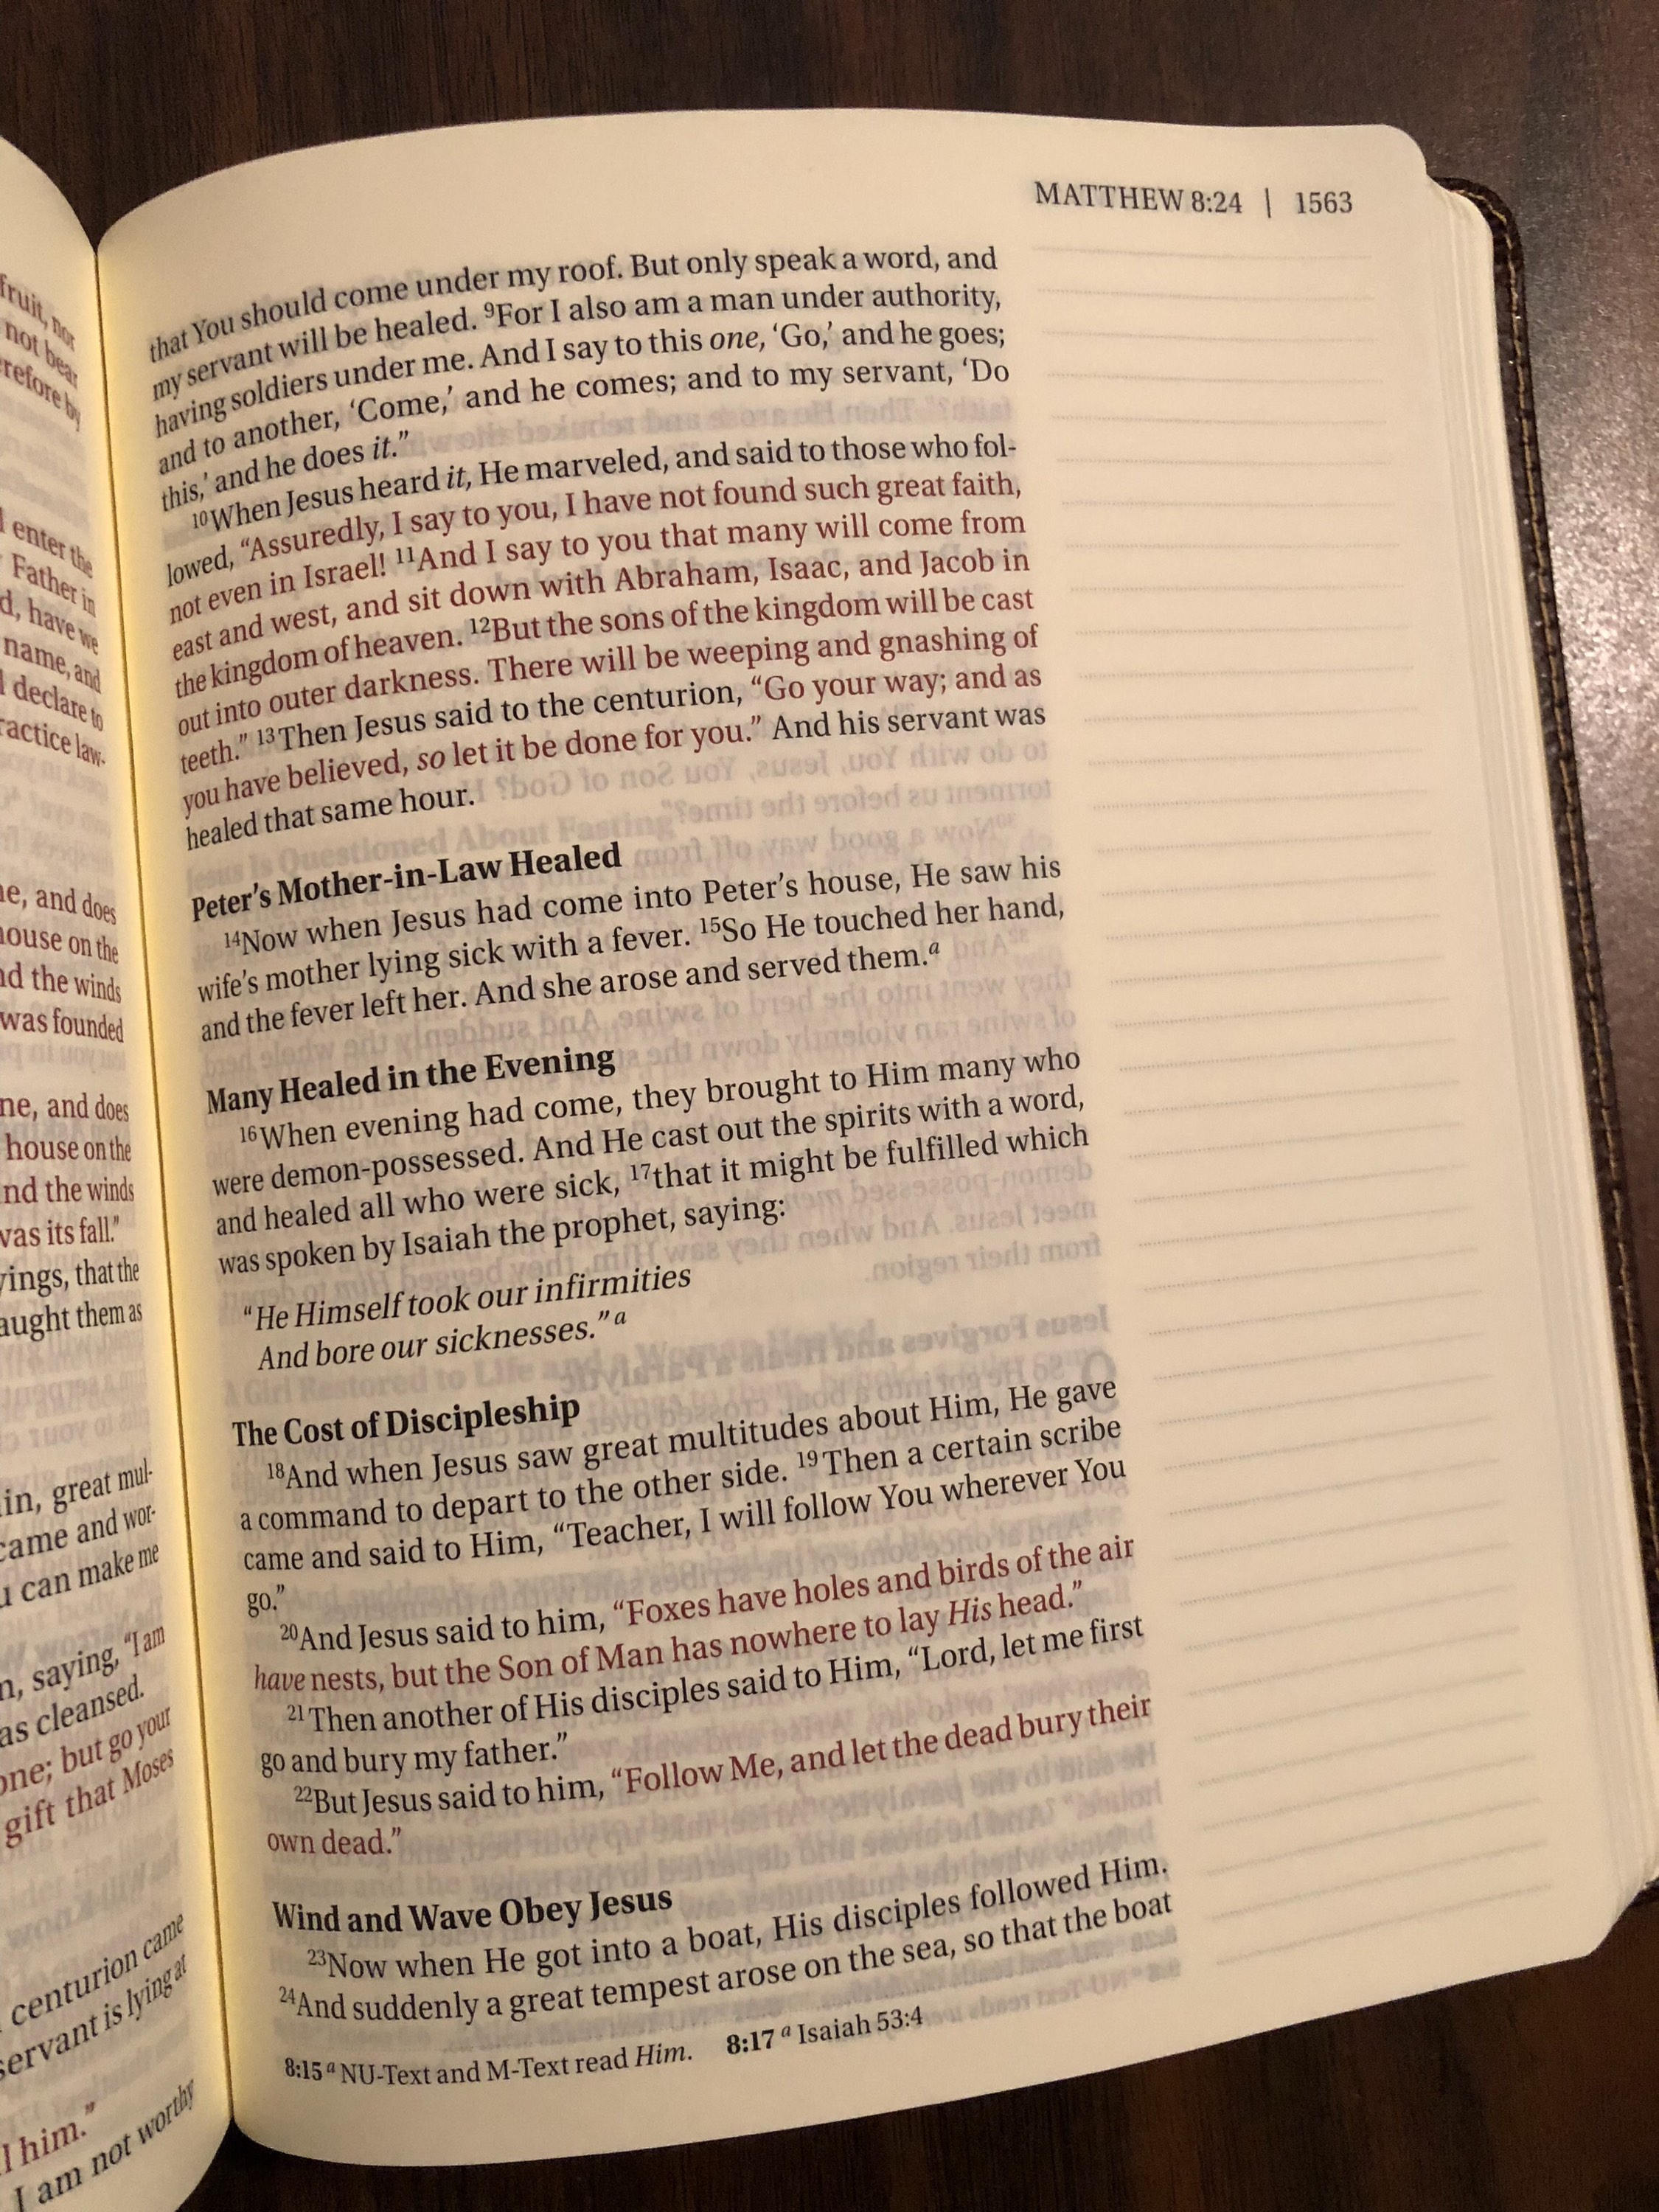 fruit, nor
not bear
refore by
enter the
Father in
d, have we
name, and
declare to
ractice law-
ne, and does
house on the
nd the winds
was founded
ne, and does
house on the
nd the winds
was its fall."
yings, that the
aught them as
in, great mul-
came and wor-
u can make me
n, saying, "I am
as cleansed.
one; but go your
gift that Moses
centurion came
servant is lying at
l him."
I am not worthy
MATTHEW 8:24 | 1563
that You should come under my roof. But only speak a word, and
my servant will be healed. ⁹For I also am a man under authority,
having soldiers under me. And I say to this one, ‘Go,’ and he goes;
and to another, ‘Come,’ and he comes; and to my servant, ‘Do
this,’ and he does it.”
¹⁰When Jesus heard it, He marveled, and said to those who fol-
lowed, “Assuredly, I say to you, I have not found such great faith,
not even in Israel! ¹¹And I say to you that many will come from
east and west, and sit down with Abraham, Isaac, and Jacob in
the kingdom of heaven. ¹²But the sons of the kingdom will be cast
out into outer darkness. There will be weeping and gnashing of
teeth.” ¹³Then Jesus said to the centurion, “Go your way; and as
you have believed, so let it be done for you.” And his servant was
healed that same hour.
Peter’s Mother-in-Law Healed
¹⁴Now when Jesus had come into Peter’s house, He saw his
wife’s mother lying sick with a fever. ¹⁵So He touched her hand,
and the fever left her. And she arose and served them.ᵃ
Many Healed in the Evening
¹⁶When evening had come, they brought to Him many who
were demon-possessed. And He cast out the spirits with a word,
and healed all who were sick, ¹⁷that it might be fulfilled which
was spoken by Isaiah the prophet, saying:
“He Himself took our infirmities
And bore our sicknesses.”ᵃ
The Cost of Discipleship
¹⁸And when Jesus saw great multitudes about Him, He gave
a command to depart to the other side. ¹⁹Then a certain scribe
came and said to Him, “Teacher, I will follow You wherever You
go.”
²⁰And Jesus said to him, “Foxes have holes and birds of the air
have nests, but the Son of Man has nowhere to lay His head.”
²¹Then another of His disciples said to Him, “Lord, let me first
go and bury my father.”
²²But Jesus said to him, “Follow Me, and let the dead bury their
own dead.”
Wind and Wave Obey Jesus
²³Now when He got into a boat, His disciples followed Him.
²⁴And suddenly a great tempest arose on the sea, so that the boat
8:15 ᵃ NU-Text and M-Text read Him. 8:17 ᵃ Isaiah 53:4